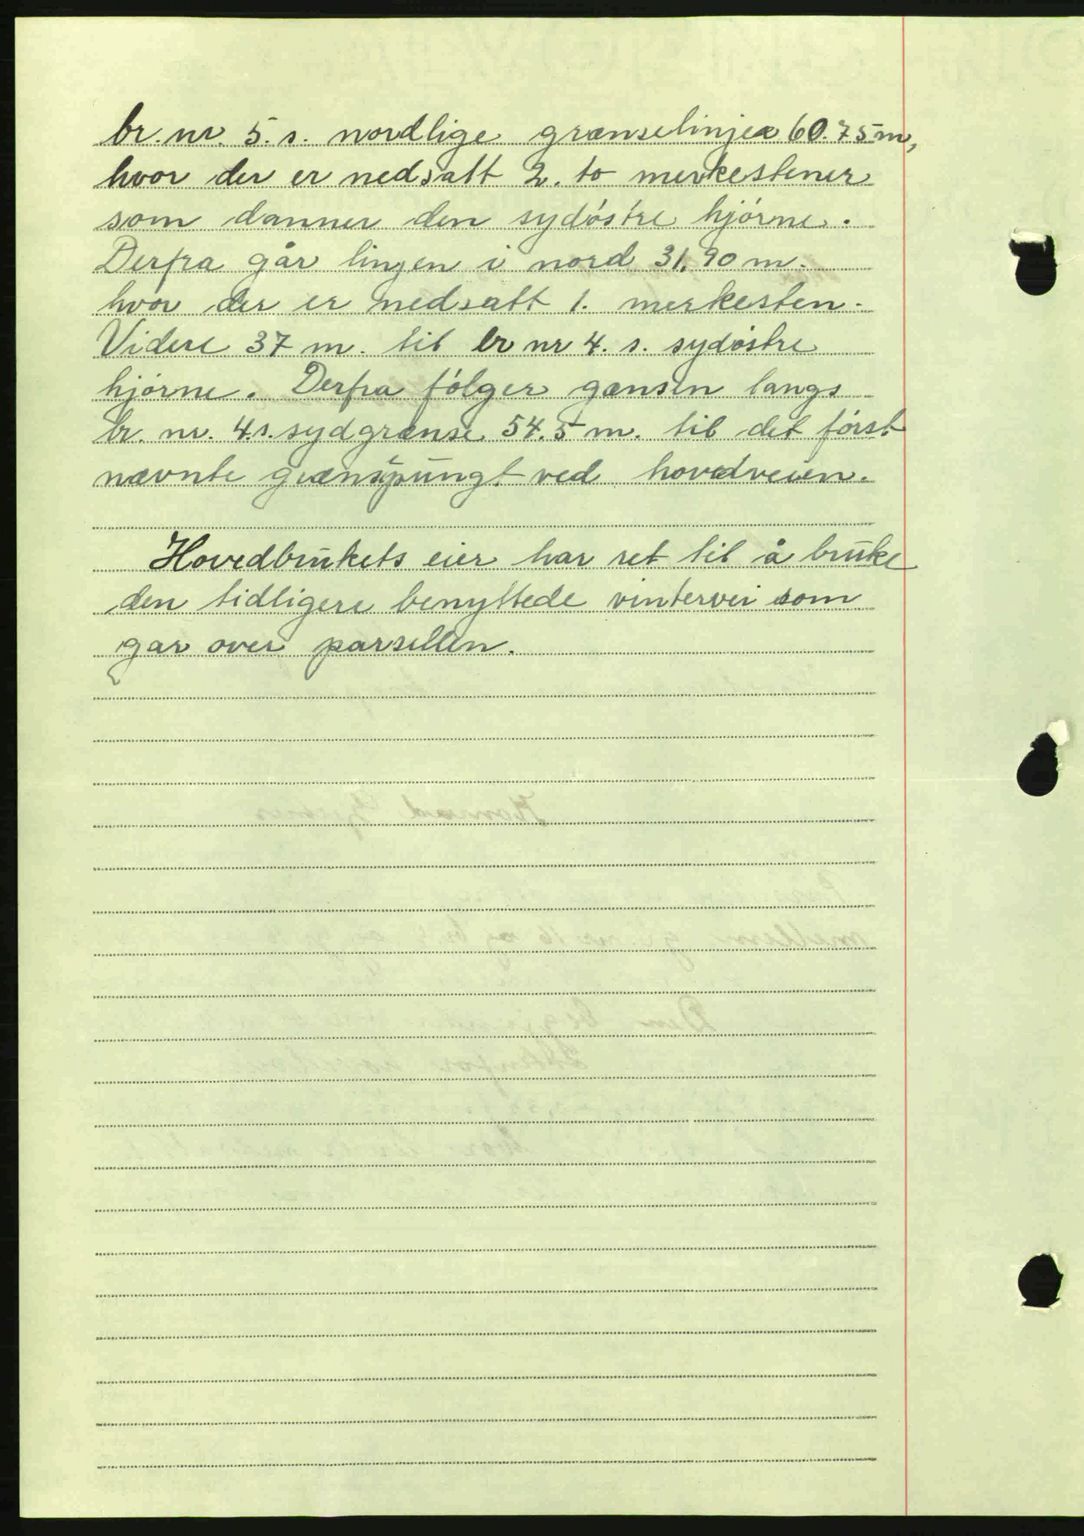 br. nr. 5. s. nordlige grænselinje 60.75 m,
hvor der er nedsatt 2. to merkestener
som danner den sydøstre hjørne.
Derfra går linjen i nord 31,90 m.
hvor der er nedsatt 1. merkesten.
Videre 37 m. til br nr 4. s. sydøstre
hjørne. Derfra følger gænsen langs
br. nr. 4.s. sydgrænse 54.5 m. til det først
nævnte grænspungt ved hovedveien.
Hovedbrukets eier har ret til å bruke
den tidligere benyttede vintervei som
går over parsellen.